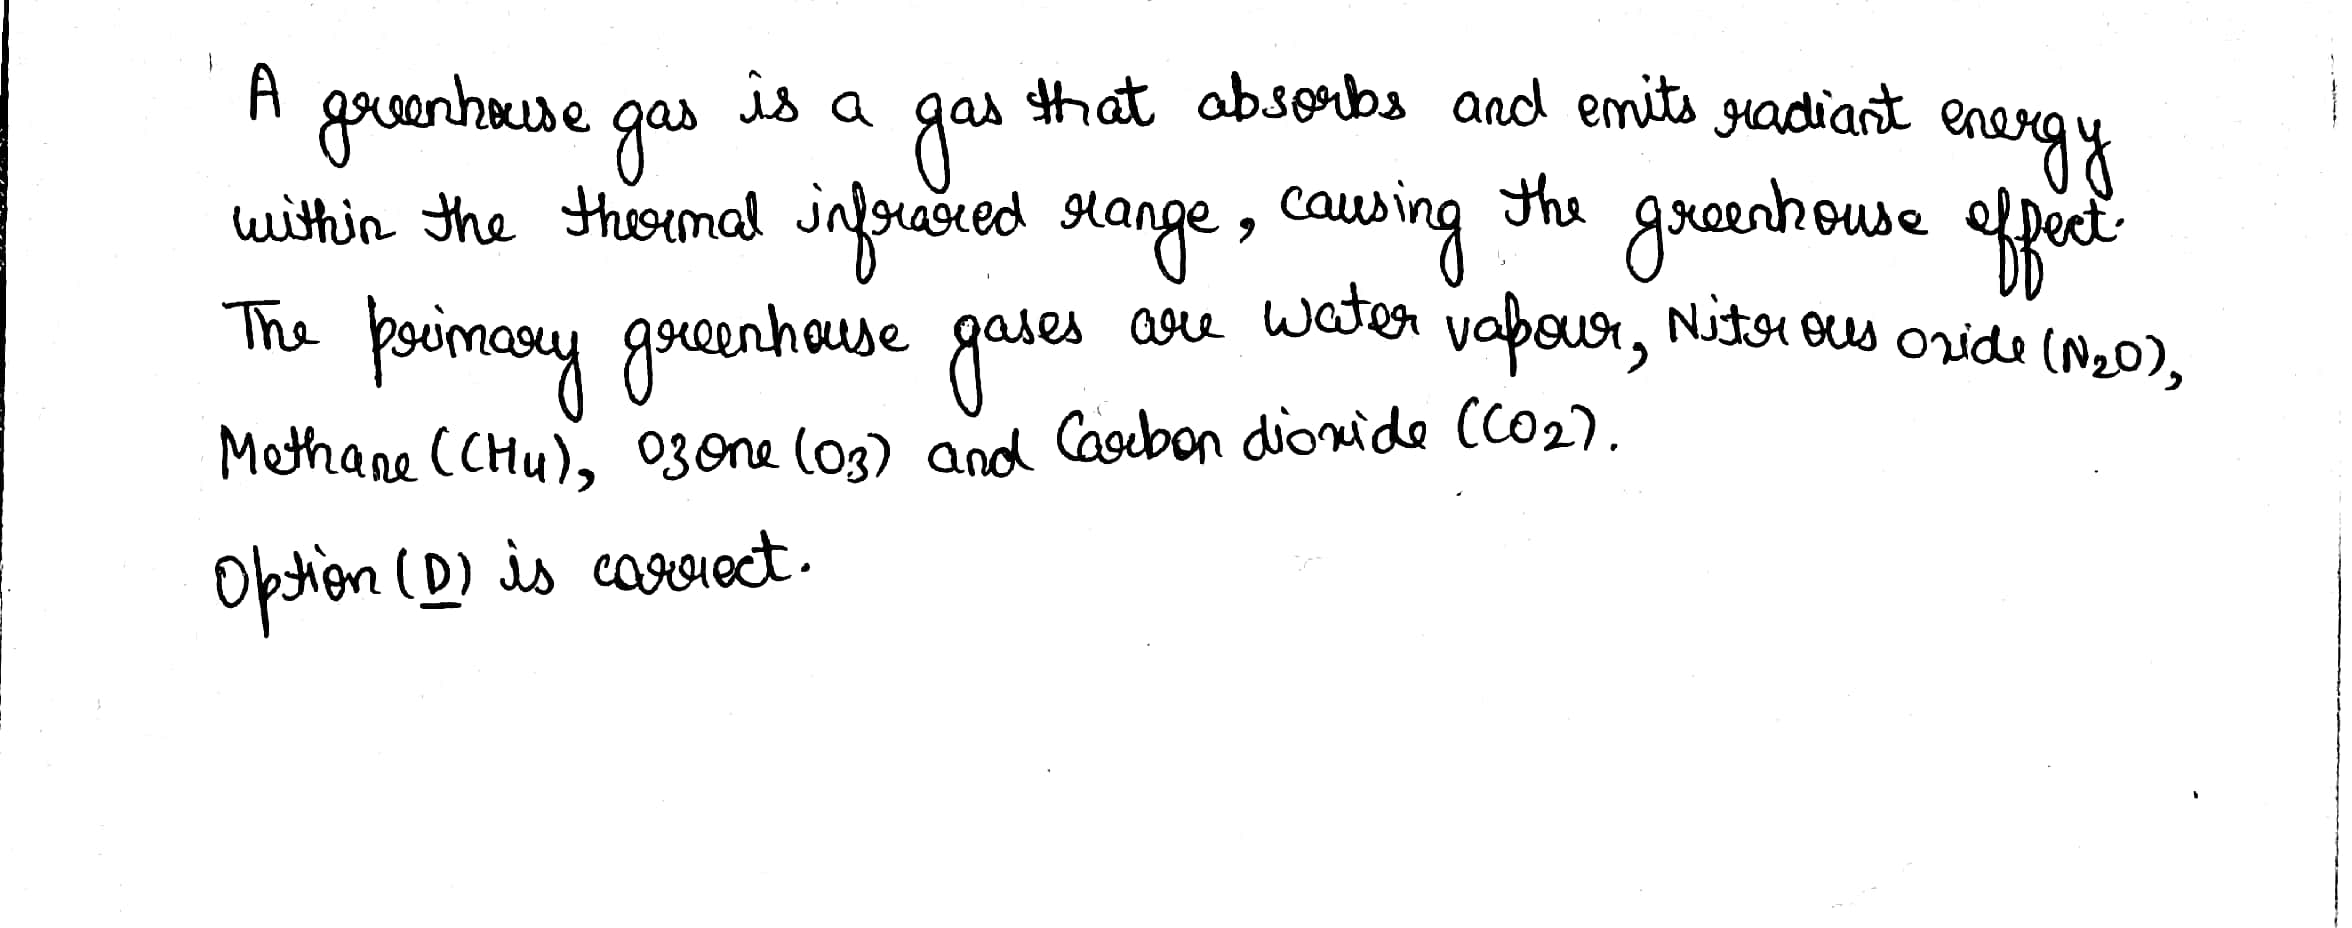 A greenhouse gas is a gas that absorbs and emits radiant energy
within the thermal infrared range, causing the greenhouse effect.
The primary greenhouse gases are Water vapour, Nitrous oxide (N2O),
Methane (CH4), Ozone (O3) and Carbon dioxide (CO2).
Option (D) is correct.